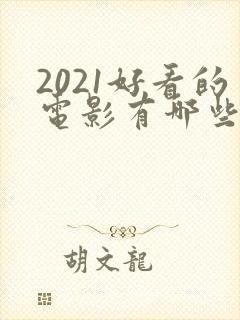 2021好看的
電影有哪些
胡文龍